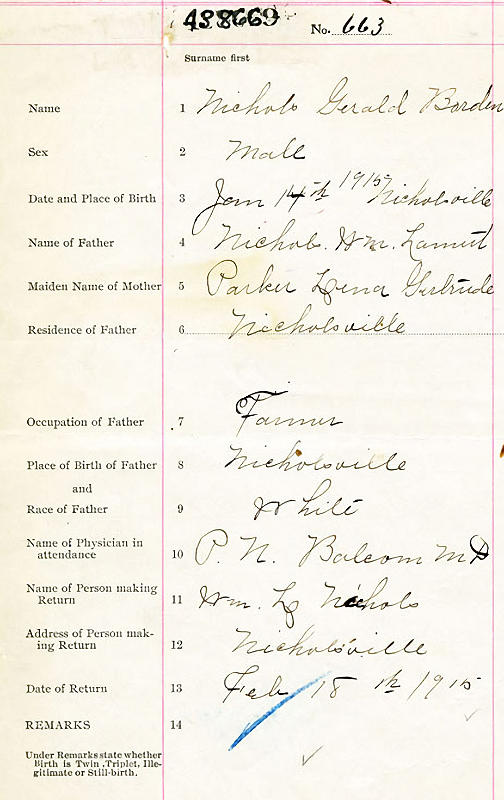 438669
No. 663
Surname first
Name 1 Nichols Gerald Borden
Sex 2 Male
Date and Place of Birth 3 Jan 14th 1915 Nicholsville
Name of Father 4 Nichols. Wm. Lamert
Maiden Name of Mother 5 Parker Lena Gertrude
Residence of Father 6 Nicholsville
Occupation of Father 7 Farmer
Place of Birth of Father 8 Nicholsville
and
Race of Father 9 White
Name of Physician in
attendance 10 P. N. Balcom M D
Name of Person making
Return 11 Wm. L Nichols
Address of Person mak-
ing Return 12 Nicholsville
Date of Return 13 Feb 18th 1915
REMARKS 14
Under Remarks state whether
Birth is Twin, Triplet, Ille-
gitimate or Still-birth.